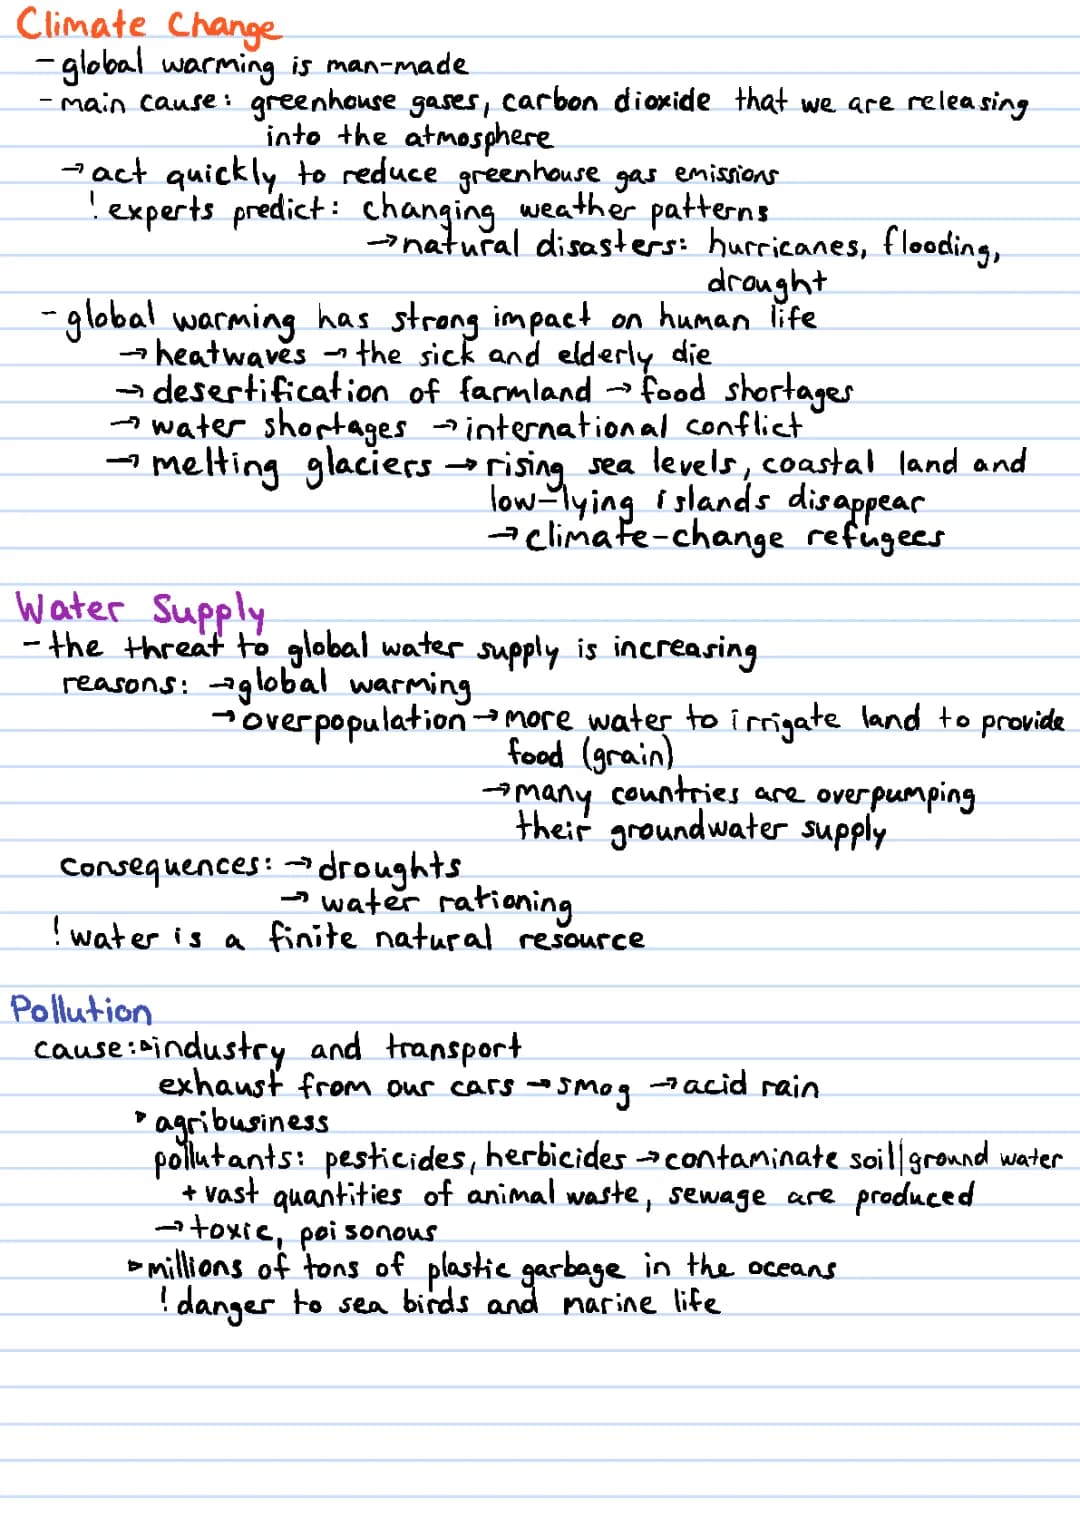 Climate Change
- global warming is man-made
- main cause: greenhouse gases, carbon dioxide that we are releasing
into the atmosphere
→ act quickly to reduce greenhouse gas emissions
! experts predict: changing weather patterns
→ natural disasters: hurricanes, flooding,
drought
- global warming has strong impact on human life
→ heatwaves → the sick and elderly die
→ desertification of farmland → food shortages
→ water shortages → international conflict
→ melting glaciers → rising sea levels, coastal land and
low-lying islands disappear
→ climate-change refugees
Water Supply
- the threat to global water supply is increasing
reasons: → global warming
→ overpopulation → more water to irrigate land to provide
food (grain)
→ many countries are overpumping
their groundwater supply
consequences: → droughts
→ water rationing
! water is a finite natural resource
Pollution
cause: ▹ industry and transport
exhaust from our cars → smog → acid rain
▹ agribusiness
pollutants: pesticides, herbicides → contaminate soil|ground water
+ vast quantities of animal waste, sewage are produced
→ toxic, poisonous
▹ millions of tons of plastic garbage in the oceans
! danger to sea birds and marine life